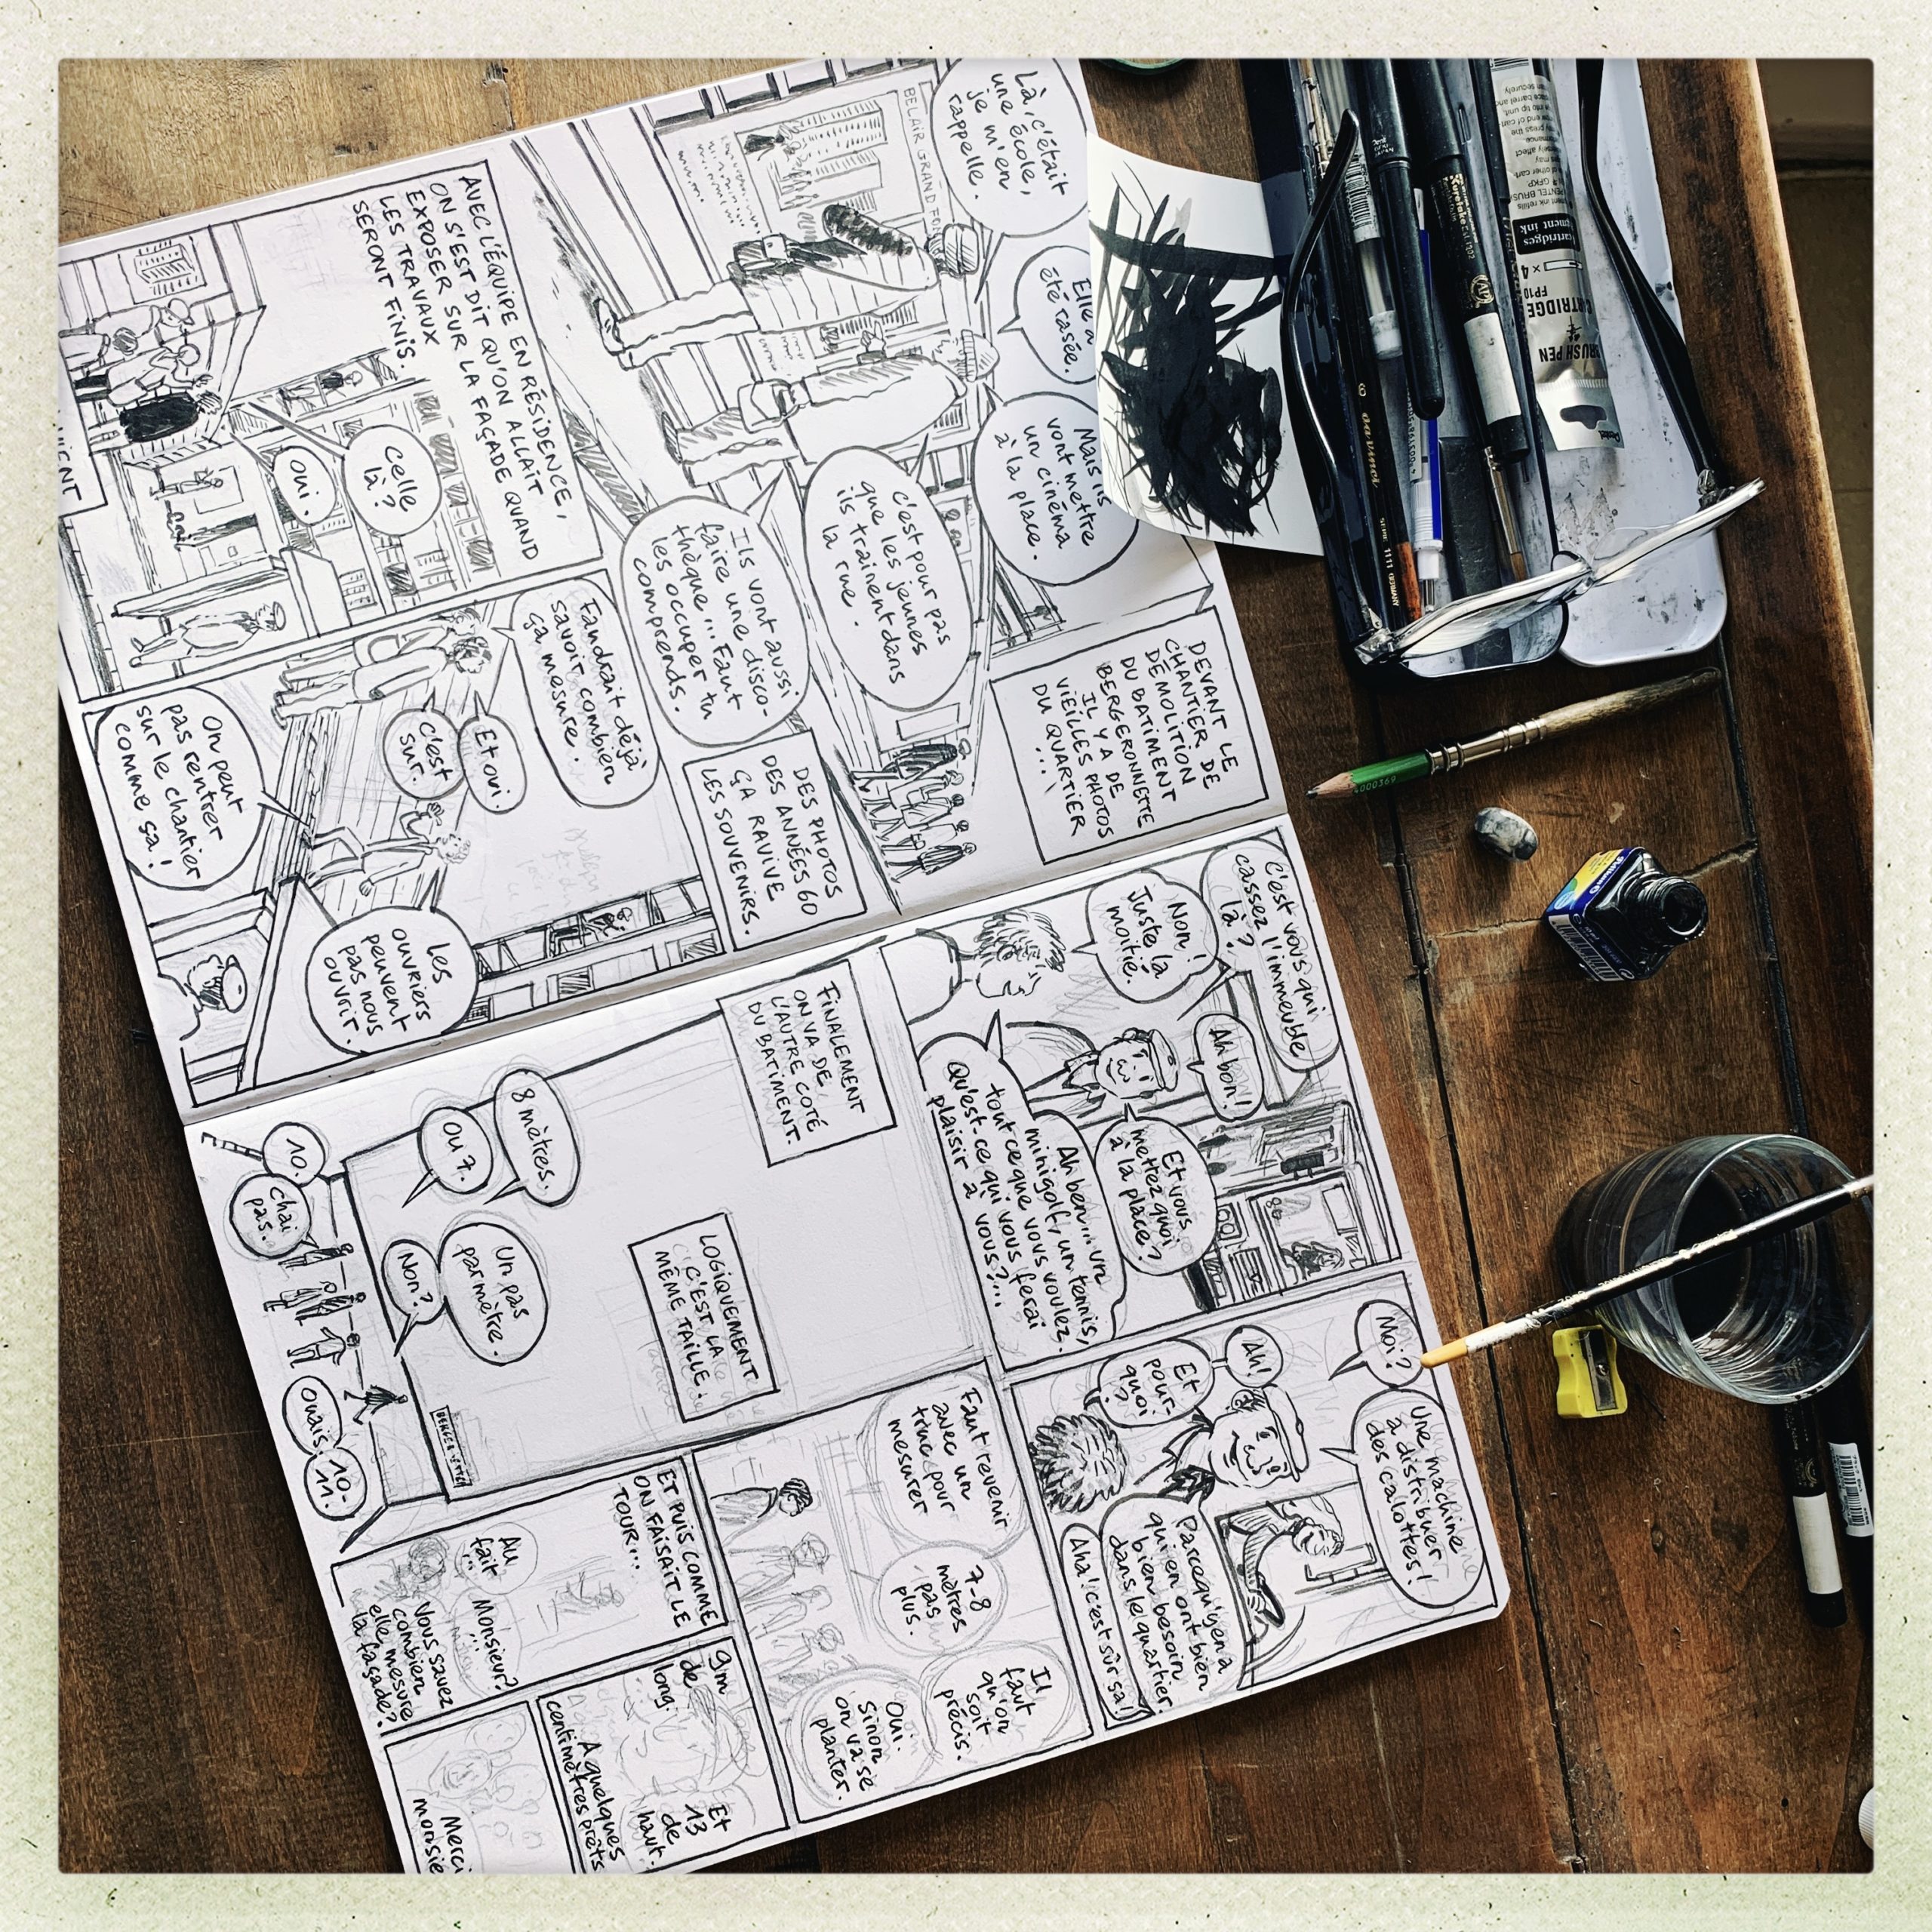 Là, c'était
une école,
je m'en
rappelle.
Elle a
été rasée.
Mais ils
vont mettre
un cinéma
à la place.
DEVANT LE
CHANTIER DE
DÉMOLITION
DU BATIMENT
BERGERONNETTE
IL Y A DE
VIEILLES PHOTOS
DU QUARTIER
...
BELAIR GRAND FONT
C'est pour pas
que les jeunes
ils trainent dans
la rue.
Ils vont aussi
faire une disco-
thèque... Faut
les occuper tu
comprends.
DES PHOTOS
DES ANNÉES 60
ÇA RAVIVE
LES SOUVENIRS.
AVEC L'ÉQUIPE EN RÉSIDENCE,
ON S'EST DIT QU'ON ALLAIT
EXPOSER SUR LA FAÇADE QUAND
LES TRAVAUX
SERONT FINIS.
Celle
là?
Oui.
Faudrait déjà
savoir combien
ça mesure.
Et oui.
C'est
sur.
On peut
pas rentrer
sur le chantier
comme sa!
Les
ouvriers
peuvent
pas nous
ouvrir.
C'est vous qui
cassez l'immeuble
là?
Non!
Juste la
moitié.
Ah bon!
Et vous
mettrez quoi
à la place?
Ah ben... un
minigolf, un tennis,
tout ce que vous voulez.
Qu'est-ce qui vous ferai
plaisir à vous?...
Moi?
Une machine
à distribuer
des calottes!
Ah!
Et
pour-
quoi
?
Parcequ'y en a
qui en ont bien
bien besoin
dans le quartier.
Aha! c'est sûr sa!
FINALEMENT
ON VA DE
L'AUTRE COTÉ
DU BATIMENT.
LOGIQUEMENT
C'EST LA
MÊME TAILLE.
8 mètres.
Ou 7.
Un pas
par mètre.
Non?
10.
Chai
pas.
Ouais.
10-
11.
Faut revenir
avec un
truc pour
mesurer
7-8
mètres
pas
plus.
Il
faut
qu'on
soit
précis.
Oui.
Sinon
on va se
planter.
ET PUIS COMME
ON FAISAIT LE
TOUR...
Au
fait
...
Monsieur?
Vous savez
combien
elle mesure
la façade?
9m
de
long.
Et
13
de
haut.
A quelques
centimètres prêts
Merci
monsie
CARTRIDGE
FP10
× 4
BRUSH PEN
Pentel
da Vinci
SERIE 1111 GERMANY
4000369